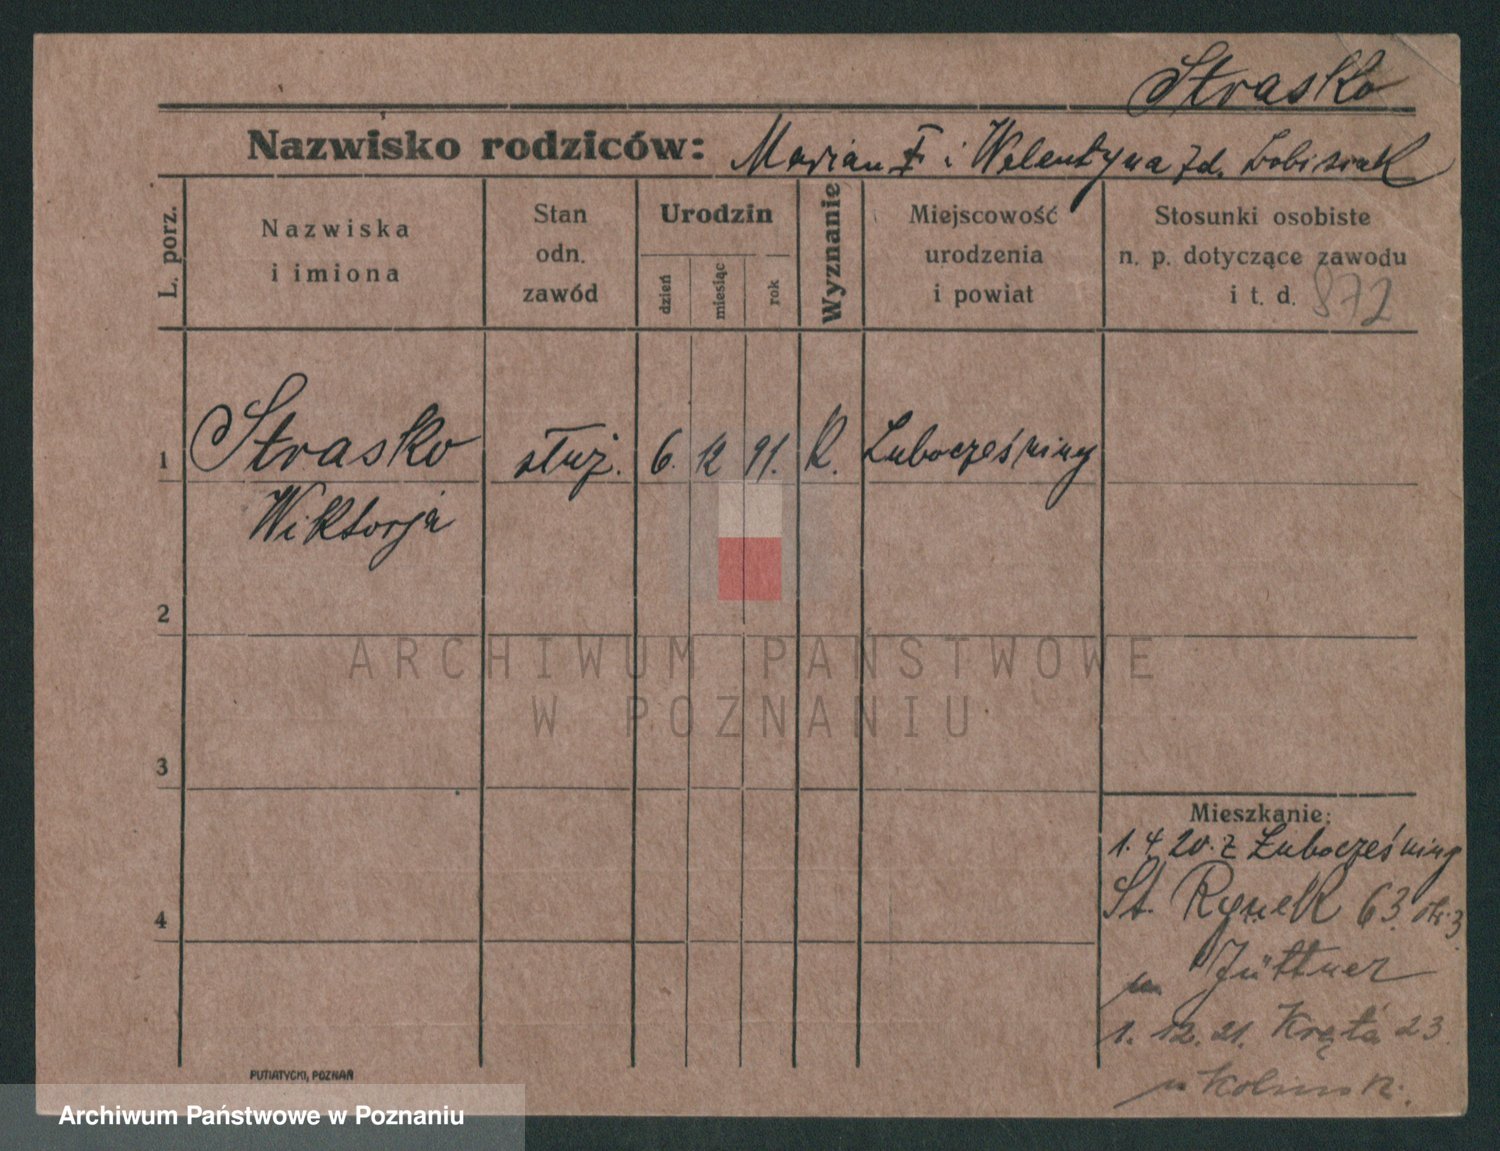 Strasko
Nazwisko rodziców: Marian † i Walentyna zd.
L. porz.
Nazwiska i imiona
Stan odn. zawód
Urodzin
dzień
miesiąc
rok
Wyznanie
Miejscowość urodzenia i powiat
Stosunki osobiste n. p. dotyczące zawodu i t. d.
872
1 Strasko służ. 6. 12 91. k. Lubocześnicy
Wiktorja
2
3
4
ARCHIWUM PAŃSTWOWE
W POZNANIU
Mieszkanie:
1. 4 20. z Lubocześnicy
St. Rynek 63.
Jüttner
1. 12. 21. Kręta 23
PUTIATYCKI, POZNAŃ
Archiwum Państwowe w Poznaniu